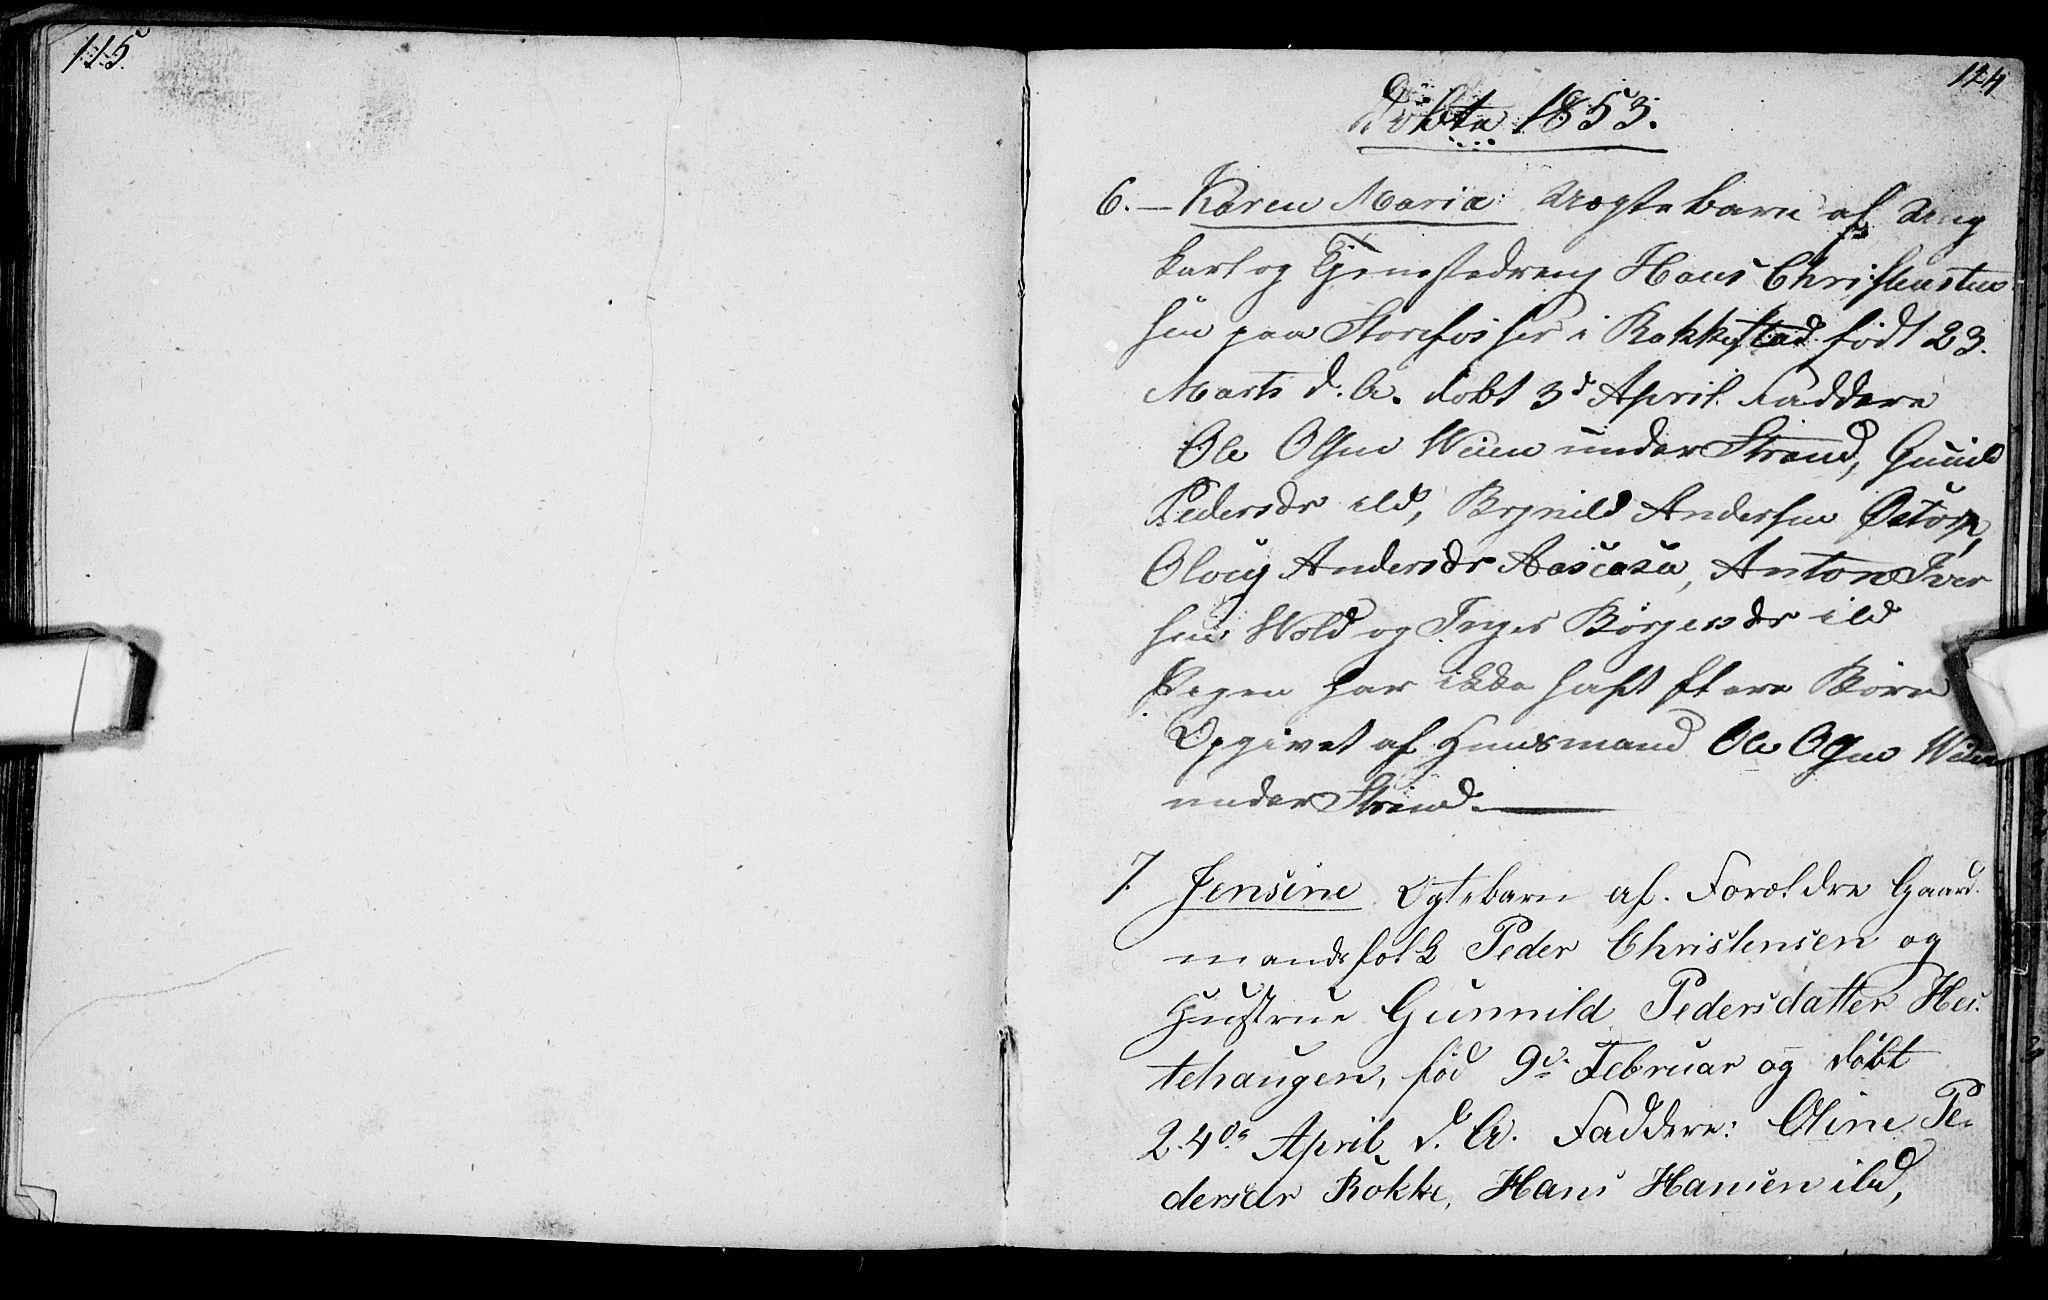 115.
114
Döbte 1853.
6. – Karen Maria: Uægte barn af Ung
karl og Tjenestedreng Hans Christensen
sen paa Storefos her i Rakkestad født 23.
Marts d. A. döbt 3d April. Faddere
Ole Olsen Wiien under Strand, Gunild
Pedersdr ibd, Brynild Andersen
Andersdr Anton Iver
sen Wold og Inger Börgersdr ibd
Pigen har ikke haft flere Börn
Opgivet af Huusmand Ole Olsen Wiien
under Strand.
7. Jensine Ægtebarn af. Forældre Gaard.
mandsfolk Peder Christensen og
Hustrue Gunnild Pedersdatter Hes.
tehaugen, föd 9de Februar og döbt
24de April d. A. Faddere: Oline Pe-
dersdr Rokke, Hans Hansen ibd,